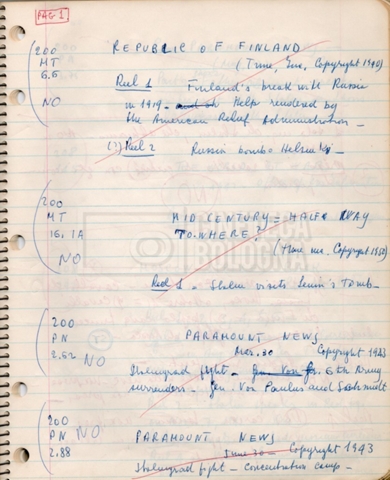 PAG 1
200 REPUBLIC OF FINLAND
MT (Time, Inc, Copyright 1940)
6.6 Reel 1 Finland's break with Russia
NO in 1919 - Help rendered by
the American Relief Administration -
(?) Reel 2 Russia bombs Helsinki -
200
MT MID CENTURY = HALF WAY
16.1A TO WHERE?
NO (Time inc. Copyright 1950)
Reel 1 - Stalin visits Lenin's Tomb -
200
PN PARAMOUNT NEWS
2.62 NO Mar. 30 Copyright 1943
Stalingrad fight - 6th Army
surrenders - Gen. Von Paulus and Schmidt
200
PN NO PARAMOUNT NEWS
2.88 June 30 - Copyright 1943
Stalingrad fight - Concentration camp -
BOLOGNA